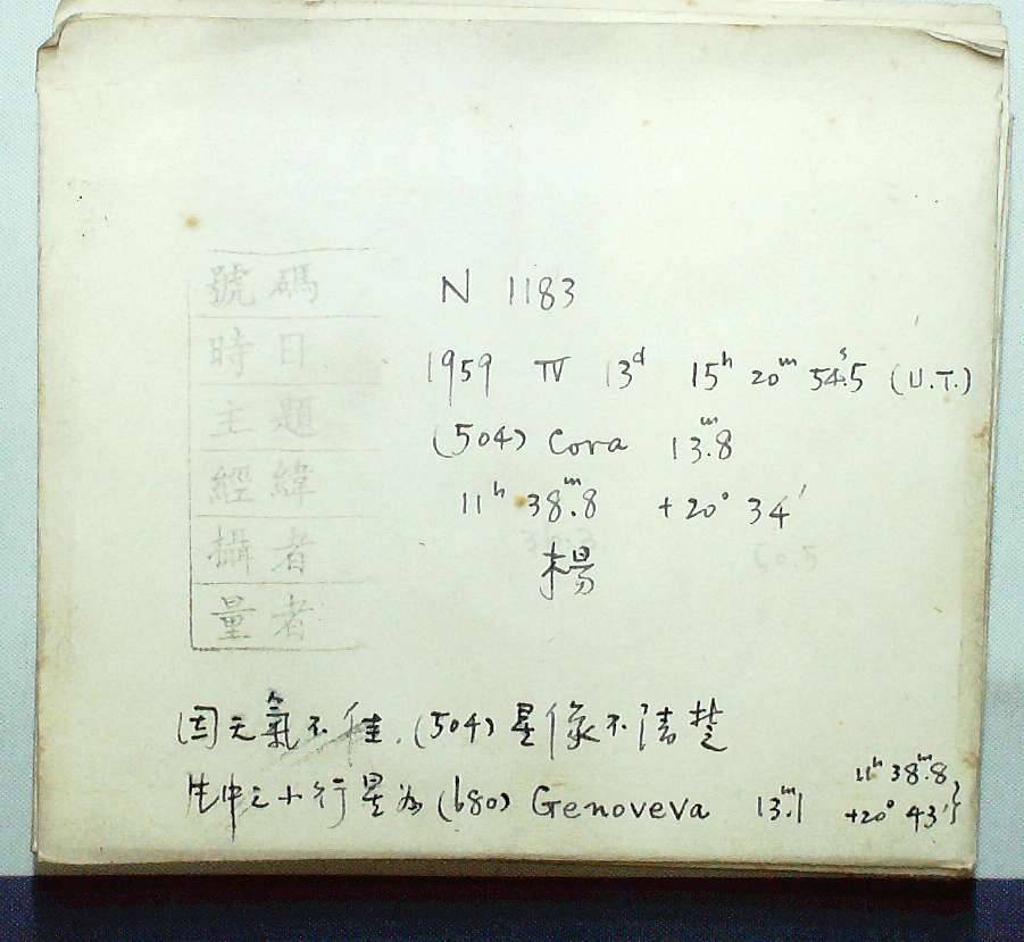 號碼 N 1183
時日 1959 IV 13ᵈ 15ʰ 20ᵐ 54ˢ.5 (U.T.)
主題 (504) Cora 13ᵐ.8
經緯 11ʰ 38ᵐ.8 +20° 34′
攝者 楊
量者
因天氣不佳,(504)星像不清楚
11ʰ 38ᵐ.8
中之小行星為(680) Genoveva 13ᵐ.1 +20° 43′}